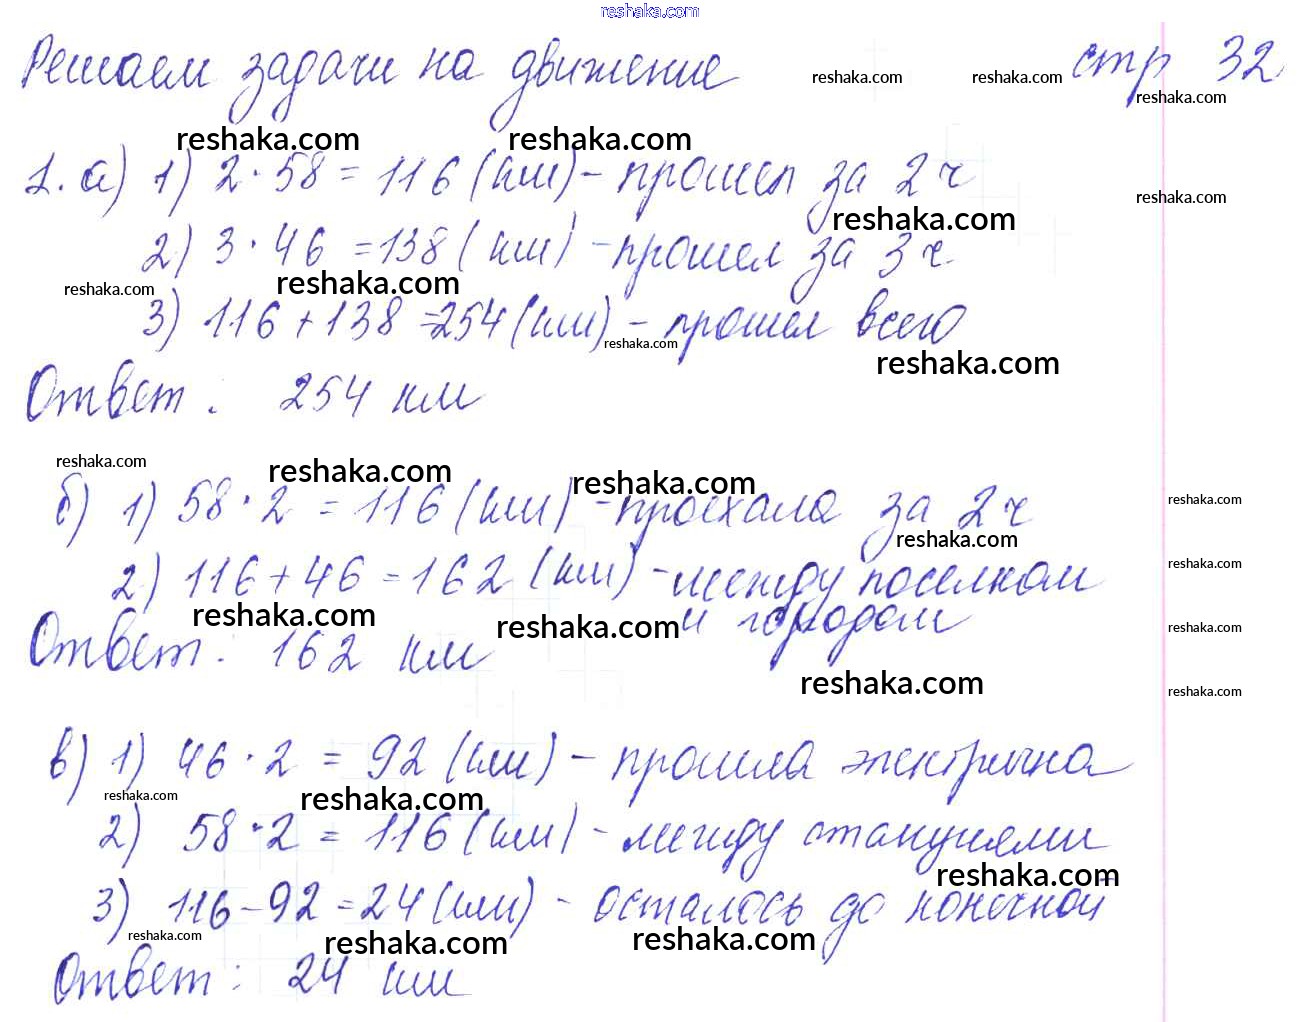 reshaka.com
Решаем задачи на движение стр 32
reshaka.com reshaka.com reshaka.com
reshaka.com reshaka.com
1. а) 1) 2 · 58 = 116 (км) - прошел за 2 ч
reshaka.com reshaka.com
2) 3 · 46 = 138 (км) - прошел за 3 ч
reshaka.com reshaka.com
3) 116 + 138 = 254 (км) - прошел всего
reshaka.com reshaka.com
Ответ : 254 км
reshaka.com reshaka.com reshaka.com
б) 1) 58 · 2 = 116 (км) - проехала за 2 ч
reshaka.com reshaka.com
2) 116 + 46 = 162 (км) - между поселком
reshaka.com
и городом
reshaka.com reshaka.com reshaka.com
Ответ : 162 км
reshaka.com reshaka.com
в) 1) 46 · 2 = 92 (км) - прошла электричка
reshaka.com reshaka.com
2) 58 · 2 = 116 (км) - между станциями
reshaka.com
3) 116 - 92 = 24 (км) - осталось до конечной
reshaka.com reshaka.com reshaka.com
Ответ : 24 км